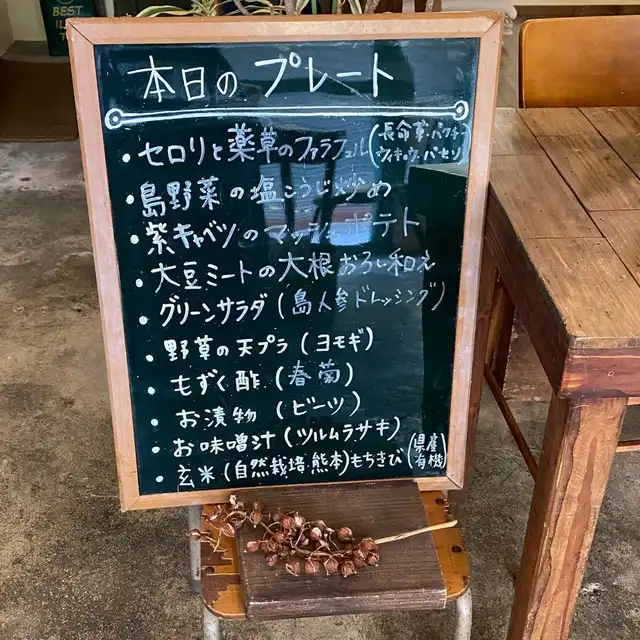 BEST
本日のプレート
・セロリと薬草のファラフェル(長命草・パクチー ウイキョウ・パセリ)
・島野菜の塩こうじ炒め
・紫キャベツのマッシュポテト
・大豆ミートの大根おろし和え
・グリーンサラダ(島人参ドレッシング)
・野草の天プラ(ヨモギ)
・もずく酢(春菊)
・お漬物(ビーツ)
・お味噌汁(ツルムラサキ)
・玄米(自然栽培・熊本)もちきび(県産 有機)